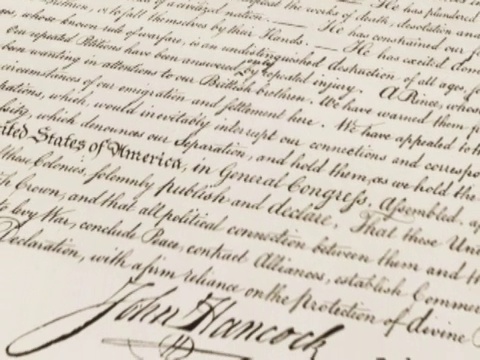 He has plundered
the works of death, desolation and
of a civilized nation. —— He has constrained our f
or to fall themselves by their Hands. —— He has excited dom
ges, whose known rule of warfare, is an undistinguished destruction of all ages, s
Our repeated Petitions have been answered only by repeated injury. A Prince, whose
been wanting in attentions to our Brittish brethren. We have warned them f
circumstances of our emigration and settlement here. We have appealed to th
pations, which, would inevitably interrupt our connections and correspo
sity, which denounces our Separation, and hold them, as we hold the
nited States of America, in General Congress, Assembled, ap
these Colonies, solemnly publish and declare, That these Uni
sh Crown, and that all political connection between them and th
to levy War, conclude Peace, contract Alliances, establish Commer
Declaration, with a firm reliance on the protection of divine
John Hancock